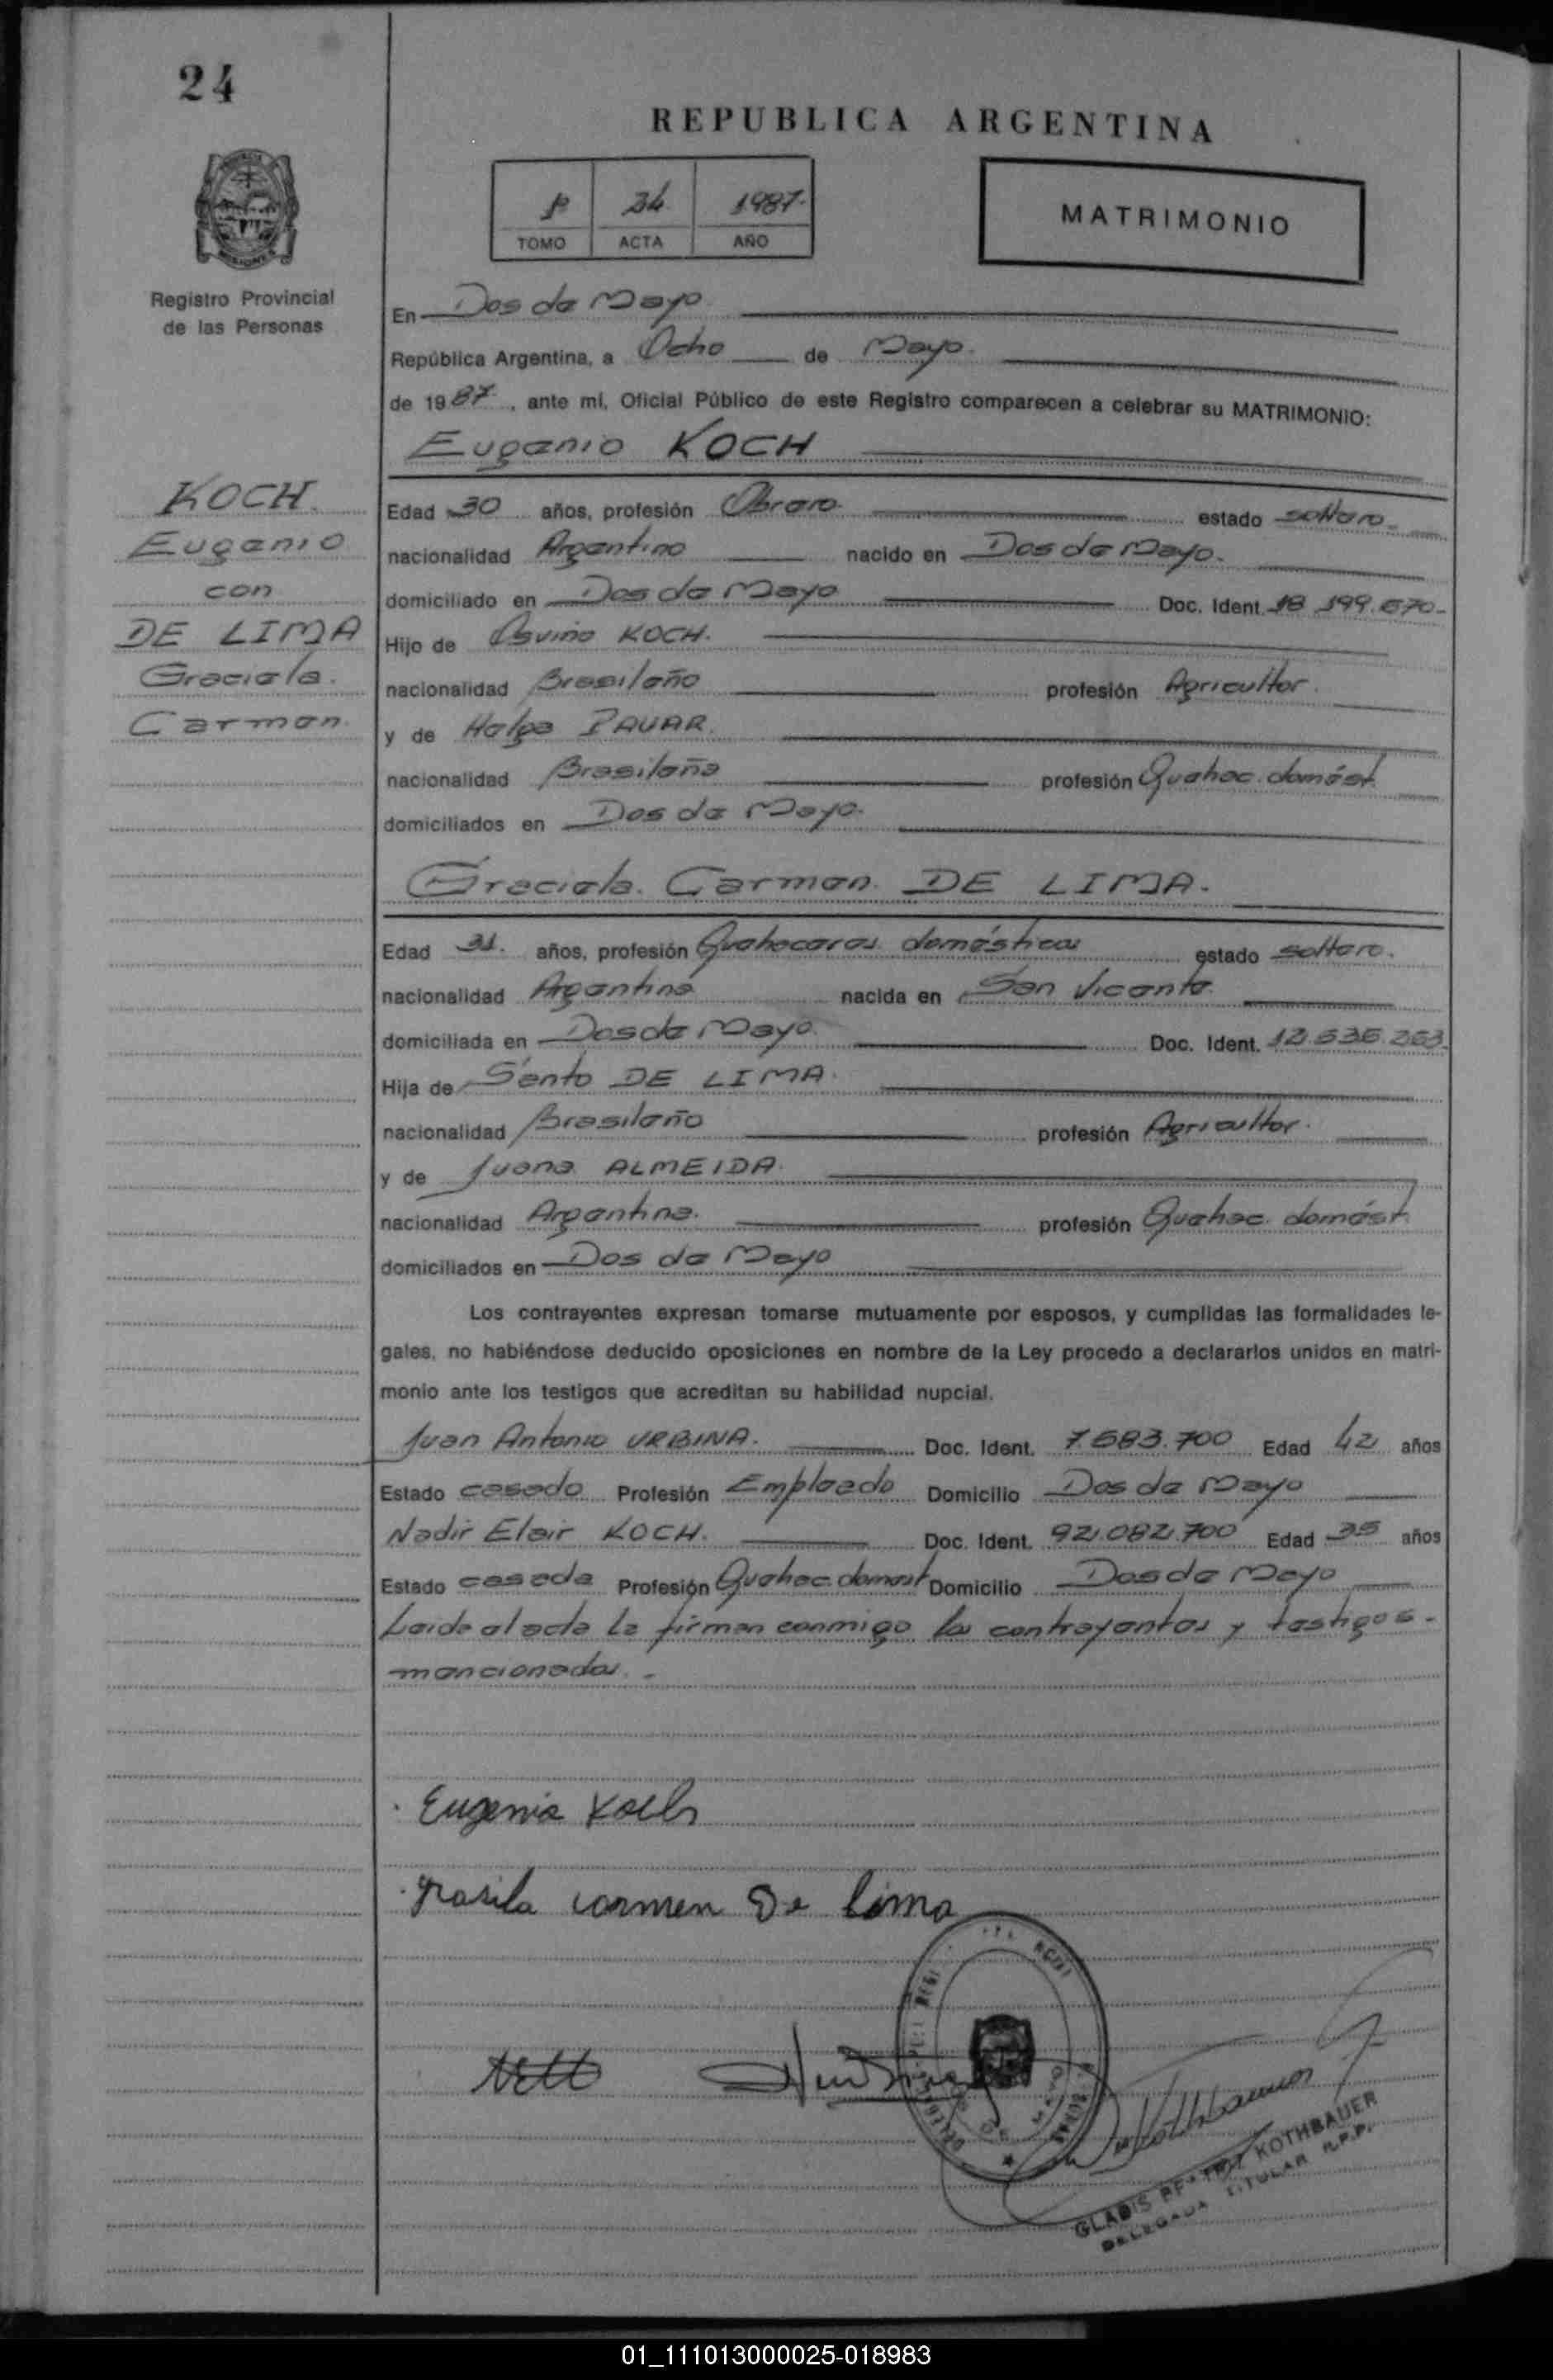 24
REPUBLICA ARGENTINA
1º 24 1987.
TOMO ACTA AÑO
MATRIMONIO
MISIONES
Registro Provincial
de las Personas
En Dos de Mayo
República Argentina, a Ocho de Mayo.
de 1987, ante mí, Oficial Público de este Registro comparecen a celebrar su MATRIMONIO:
Eugenio KOCH
KOCH.
Eugenio
con
DE LIMA
Graciela.
Carmen.
Edad 30 años, profesión Obrero. estado soltero.
nacionalidad Argentino nacido en Dos de Mayo.
domiciliado en Dos de Mayo Doc. Ident. 18 199.670-
Hijo de Osvino KOCH.
nacionalidad Brasileño profesión Agricultor.
y de Helga
nacionalidad Brasileña profesión Quehac. domést.
domiciliados en Dos de Mayo.
Graciela. Carmen. DE LIMA.
Edad 31. años, profesión Quehaceres domésticos estado soltero.
nacionalidad Argentina nacida en San Vicente.
domiciliada en Dos de Mayo. Doc. Ident. 12.535.263.
Hija de Sento DE LIMA.
nacionalidad Brasileño profesión Agricultor.
y de Juana ALMEIDA.
nacionalidad Argentina. profesión Quehac. domést.
domiciliados en Dos de Mayo
Los contrayentes expresan tomarse mutuamente por esposos, y cumplidas las formalidades le-
gales, no habiéndose deducido oposiciones en nombre de la Ley procedo a declararlos unidos en matri-
monio ante los testigos que acreditan su habilidad nupcial.
Juan Antonio URBINA. Doc. Ident. 7.683.700 Edad 42 años
Estado casado Profesión Empleado Domicilio Dos de Mayo
Nadir Elair KOCH. Doc. Ident. 92.082.700 Edad 35 años
Estado casada Profesión Quehac. domest Domicilio Dos de Mayo
Leida el acta la firman conmigo los contrayentes y testigos.-
mencionados.-
Eugenio Koch
grasila carmen De lima
Kothbauer
GLADIS BEATRIZ KOTHBAUER
DELEGADA TITULAR R.P.P.
01_111013000025-018983